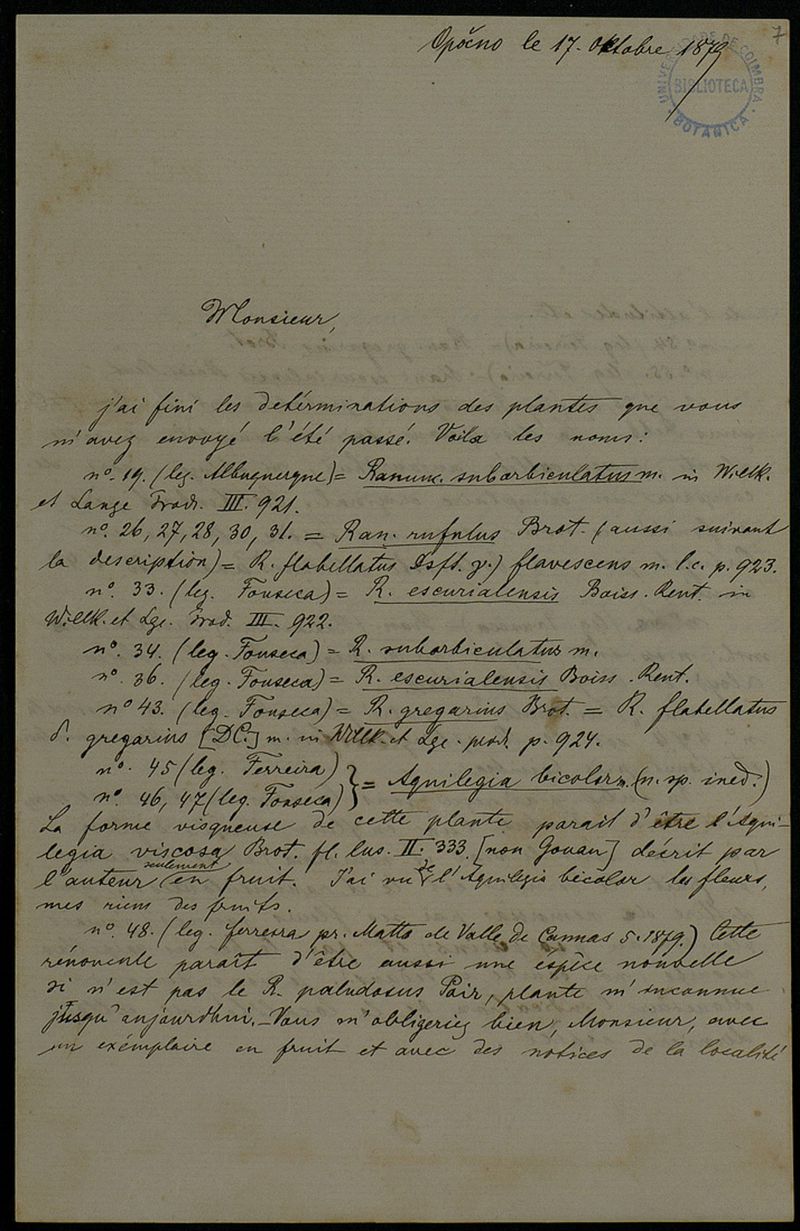 7
Opočno le 17. Oktobre 1879
UNIVERSIDADE DE COIMBRA
BIBLIOTECA
BOTANICA
Monsieur,
j'ai fini les detérminations des plantes que vous
m'avez envoyé l'été passé. Voila les noms:
no. 19. (leg. Albuquerque) = Ranunc. suborbiculatus m. in Willk.
et Lange Prodr. III. 921.
no. 26, 27, 28, 30, 31. = Ran. rufulus Brot. (aussi suivant
la description) = R. flabellatus Dsft. γ.) flavescens m. l.c. p. 923.
no. 33. (leg. Fonseca) = R. escurialensis Boiss. Reut. in
Willk. et Lge. Prod. III. 922.
no. 34. (leg. Fonseca) = R. suborbiculatus m.
no. 36. (leg. Fonseca) = R. escurialensis Boiss. Reut.
no 43. (leg. Fonseca) = R. gregarius Brot. = R. flabellatus
δ. gregarius [DC.] m. in Willk. et Lge. prod. p. 924.
no. 45 (leg. Ferreira)
no. 46, 47 (leg. Fonseca) } = Aquilegia bicolor m. (n. sp. ined.)
La forme visqueuse de cette plante parait d'être l'Aqui-
legia viscosa Brot. fl. lus. II. 333. [non Gouan] décrit par
l'auteur seulement en fruit. J'ai vu de l'Aquilegia bicolor les fleurs,
mes riens des fruits.
no 48. (leg. ferreira pr. Matta de Valle de Cannas 5. 1879.) Cette
rénoncule paraît d'être aussi une éspèce nouvelle
si n'est pas le R. paludosus Poir, plante m'inconnue
jusqu'aujourdhui. – Vous m'obligeriez bien, Monsieur, avec
un exémplaire en fruit et avec des notices de la localité